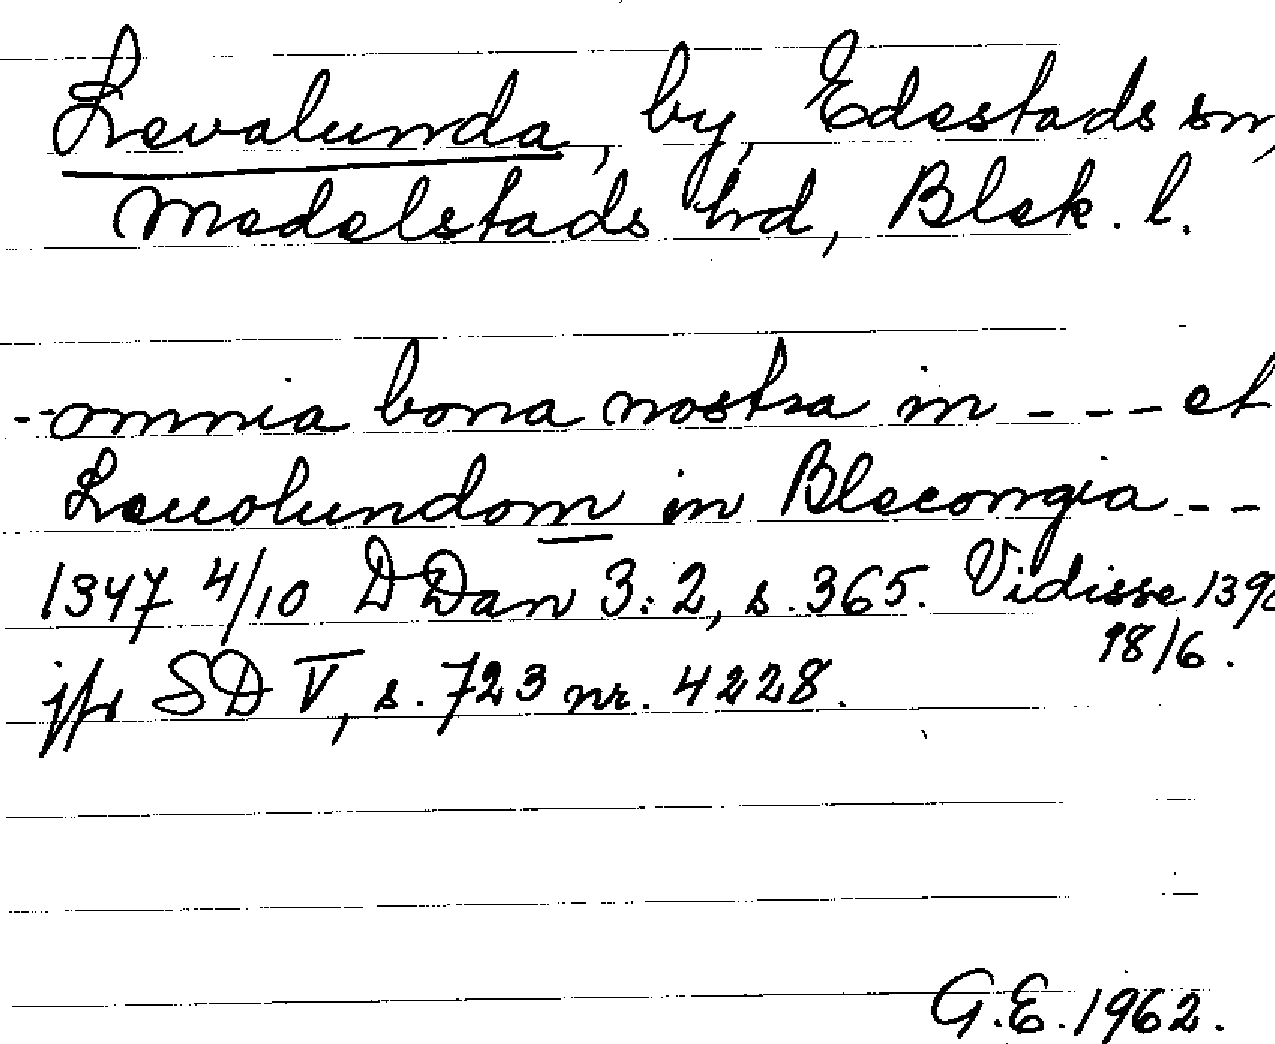 Levalunda, by, Edestads sn,
Medelstads hrd, Blek. l.
--omnia bona nostra in ---- et
Leuolundom in Blecongia --
1347 4/10 DDan 3:2, s. 365. Vidisse 1396
18/6.
jfr SD V, s. 723 nr. 4228.
G.E. 1962.